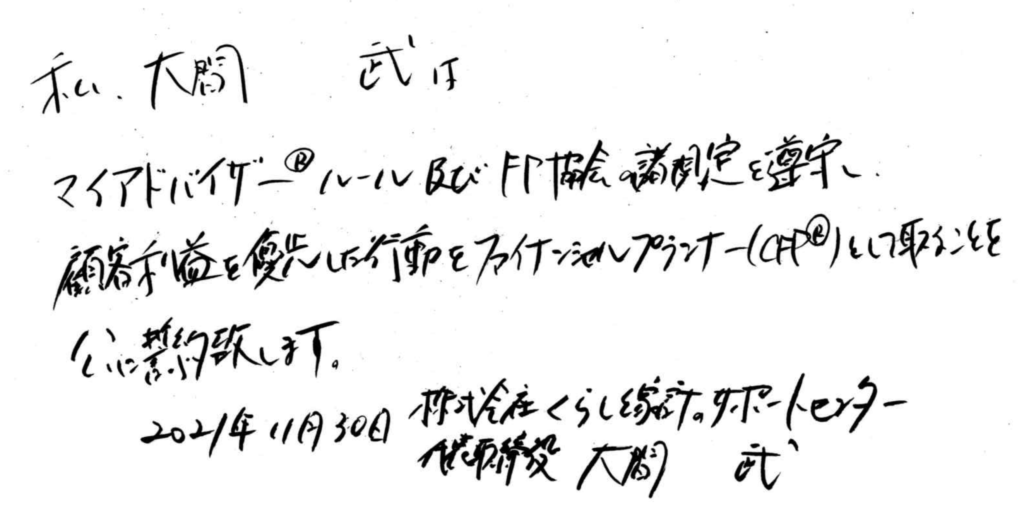 私、大間 武は
マイアドバイザー®ルール及びFP協会の諸規定を遵守し、
顧客利益を優先した行動をファイナンシャルプランナー(CFP®)として取ることを
公に誓約致します。
2021年11月30日 株式会社くらしと家計のサポートセンター
代表取締役 大間 武